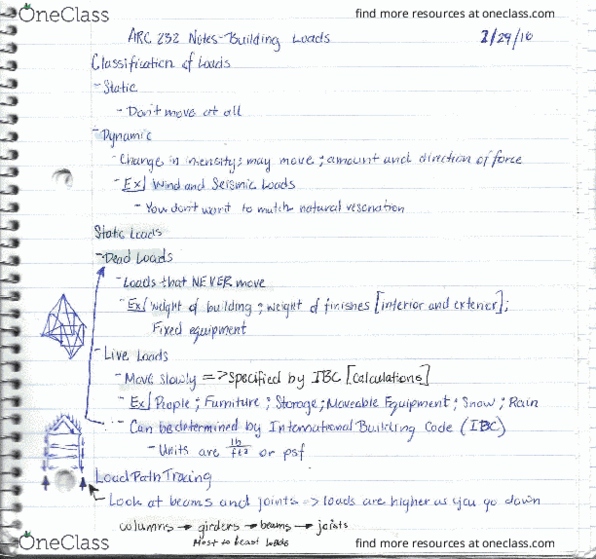 OneClass find more resources at oneclass.com
ARC 232 Notes-Building Loads 2/29/16
Classification of Loads
- Static
- Don't move at all
- Dynamic
- Change in intensity; may move ; amount and direction of force
- Ex/ Wind and Seismic Loads
- You don't want to match natural
Static Loads
- Dead Loads
- Loads that NEVER move
- Ex/ weight of building ; weight of finishes [interior and exterior];
Fixed equipment
- Live Loads
- Move slowly => specified by IBC [calculations]
- Ex/ People ; Furniture ; Storage ; Moveable Equipment ; Snow ; Rain
- Can be determined by International Building Code (IBC)
- Units are lb/ft² or psf
Load Path Tracing
- Look at beams and joints -> loads are higher as you go down
columns → girders → beams → joists
Most to least loads
OneClass find more resources at oneclass.com